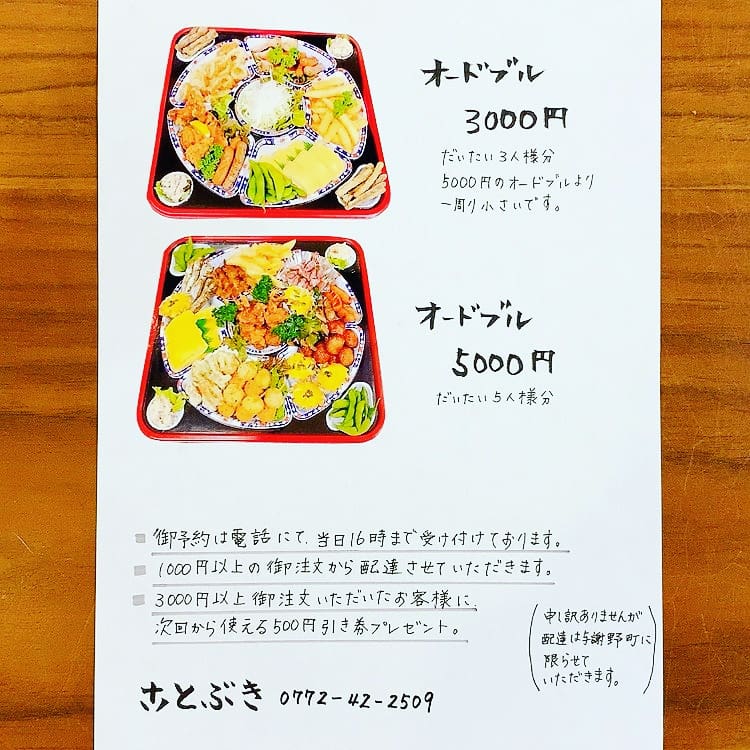 オードブル
3000円
だいたい3人様分
5000円のオードブルより
一周り小さいです。
オードブル
5000円
だいたい5人様分
御予約は電話にて、当日16時まで受け付けております。
1000円以上の御注文から配達させていただきます。
3000円以上御注文いただいたお客様に、
次回から使える500円引き券プレゼント。
(申し訳ありませんが
配達は与謝野町に
限らせて
いただきます。)
ことぶき 0772-42-2509